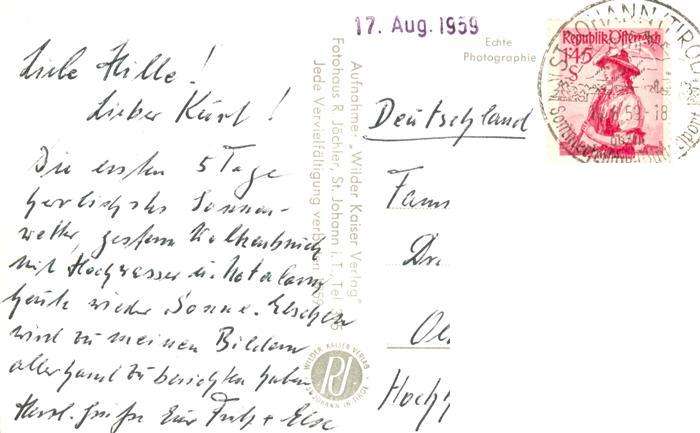 17. Aug. 1959
Echte
Photographie
Republik Österreich
1.45
S
ST. JOHANN (TIROL)
59.-18
Liebe Hilde!
Lieber Kurt!
Die ersten 5 Tage
herrlichstes Sonnen-
wetter, gestern Wolkenbruch
mit Hochwasser u. Notalarm
heute wieder Sonne. Elschen
wird zu meinen Bildern
allerhand zu berichten haben
Herzl. Grüße Eur Fritz + Else
Aufnahme: „Wilder Kaiser Verlag"
Fotohaus R. Jöchler, St. Johann i. T., Tel.
Jede Vervielfältigung verboten
WILDER KAISER VERLAG
RJ
ST. JOHANN IN TIROL
Deutschland
Fam
Dr.
Hoch